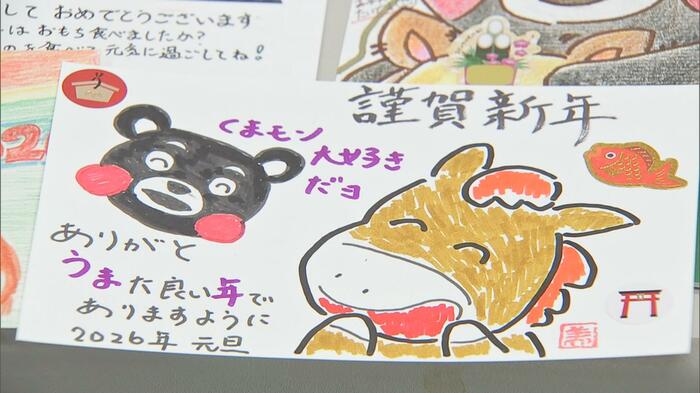 して おめでとうございます
はおもち食べましたか？
を食べて元気に過ごしてね！
謹賀新年
くまモン
大好き
だヨ
ありがと
うまた良い年で
ありますように
2026年 元旦